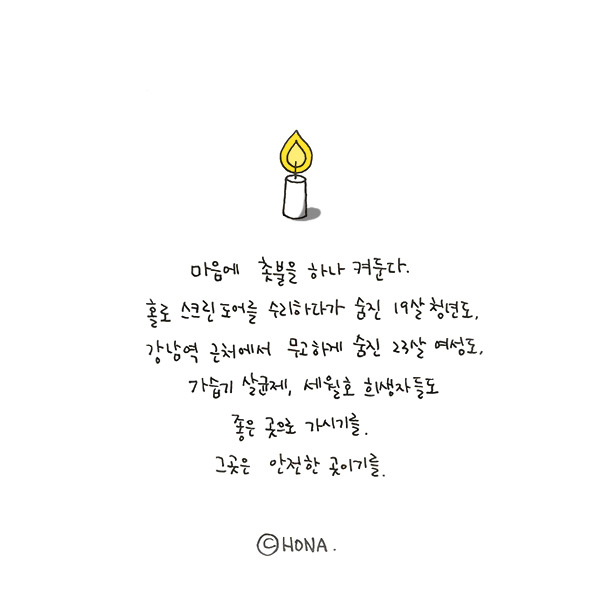 마음에 촛불을 하나 켜둔다.
홀로 스크린도어를 수리하다가 숨진 19살 청년도,
강남역 근처에서 무고하게 숨진 23살 여성도,
가습기 살균제, 세월호 희생자들도
좋은 곳으로 가시기를.
그곳은 안전한 곳이기를.
©HONA.